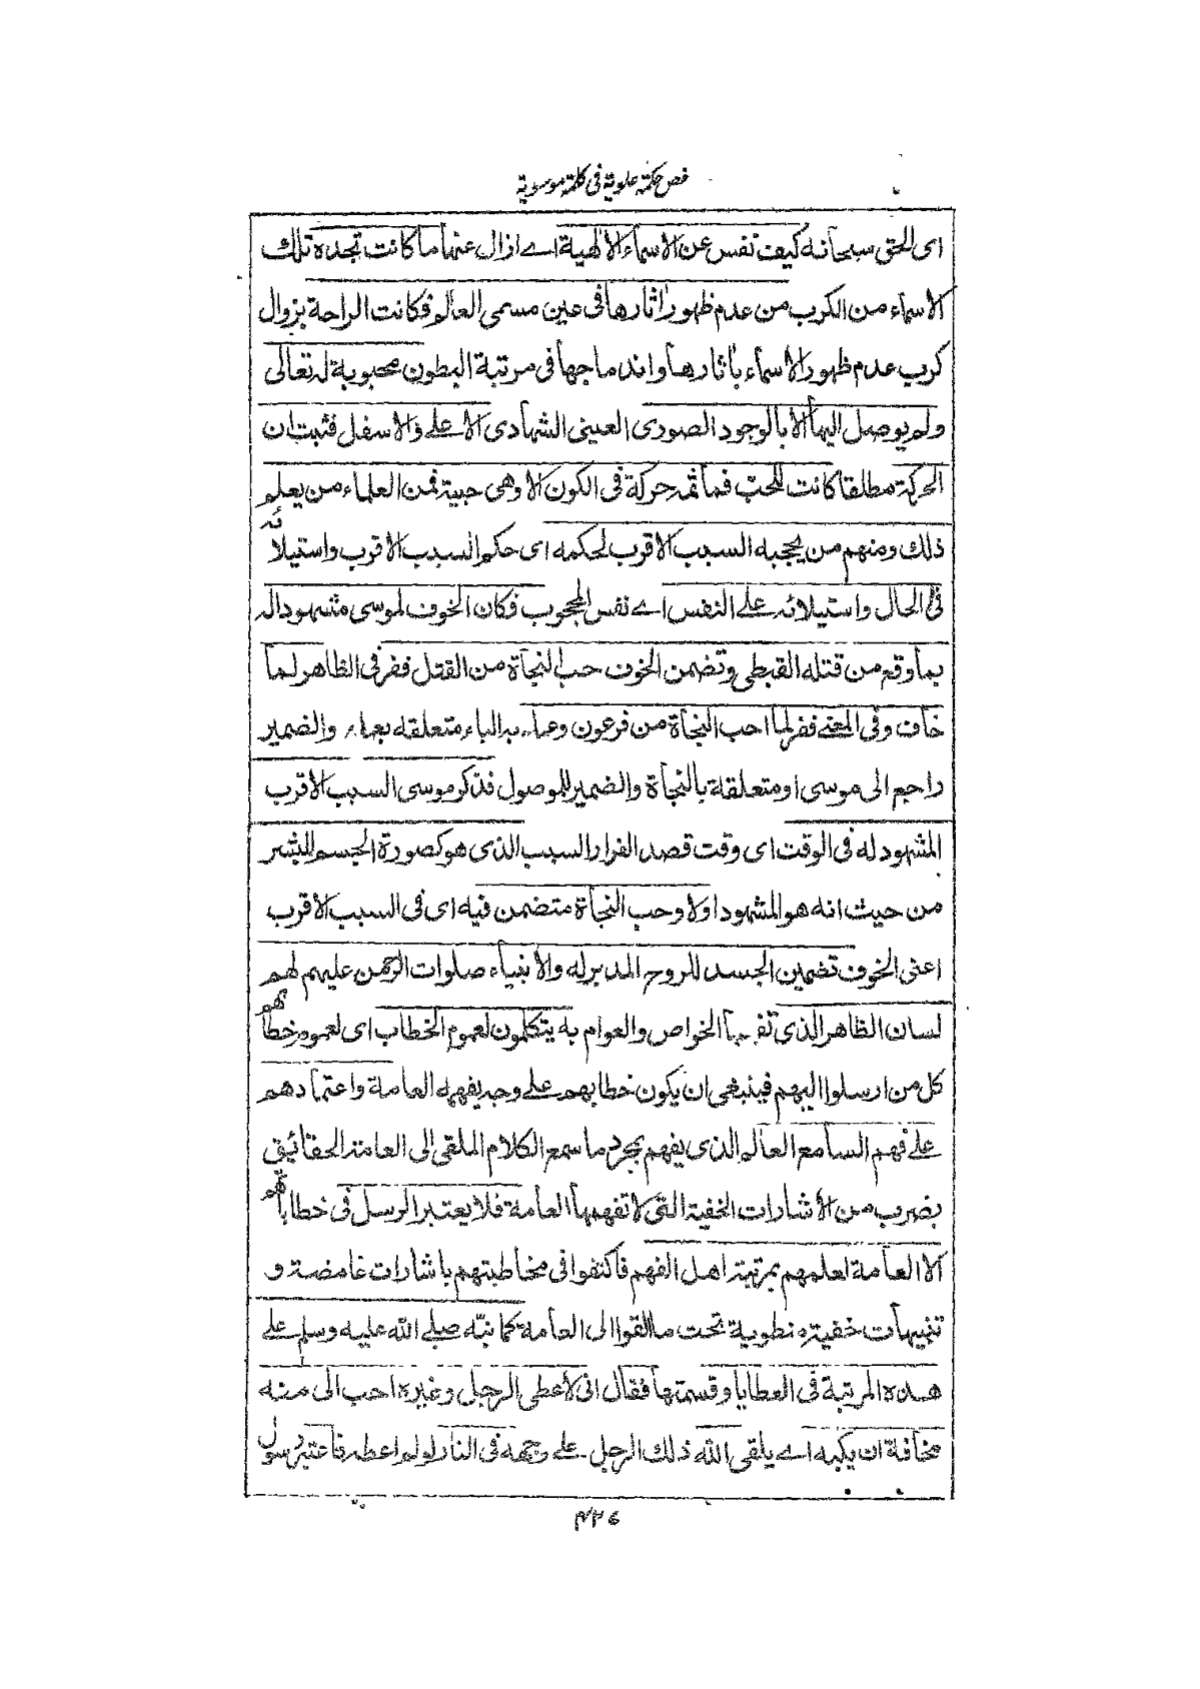 فص حكمة علوية فى كلمة موسوية
اى الحق سبحانه كيف نفس عن الاسماء الالهية اے ازال عنها ما كانت تجده تلك
الاسماء من الكرب من عدم ظهور اثارها فى عين مسمى العالم فكانت الراحة بزوال
كرب عدم ظهور الاسماء باثارها واندماجها فى مرتبة البطون محبوبة له تعالى
ولم يوصل اليها الا بالوجود الصورى العينى الشهادى الاعلے والاسفل فثبت ان
الحركة مطلقا كانت للحب فما ثمه حركة فى الكون الا وهى حبية فمن العلماء من يعلم
ذلك ومنهم من يحجبه السبب الاقرب لحكمه اى حكم السبب الاقرب واستيلائه
فى الحال واستيلائه علے النفس اے نفس المحجوب فكان الخوف لموسى مشهودا له
بما وقع من قتله القبطى وتضمن الخوف حب النجاة من القتل ففر فى الظاهر لما
خاف وفى المعنے ففر لما احب النجاة من فرعون وعمله به الباء متعلقه بعمله والضمير
راجع الى موسى او متعلقة بالنجاة والضمير للموصول فذكر موسى السبب الاقرب
المشهود له فى الوقت اى وقت قصد الفرار السبب الذى هو كصورة الجسم للبشر
من حيث انه هو المشهود اولا وحب النجاة متضمن فيه اى فى السبب الاقرب
اعنى الخوف تضمين الجسد للروح المدبر له والانبياء صلوات الرحمن عليهم لهم
لسان الظاهر الذى تفهمها الخواص والعوام به يتكلمون لعموم الخطاب اى لعموم خطابهم
كل من ارسلوا اليهم فينبغى ان يكون خطابهم علے وجه يفهمه العامة واعتمادهم
علے فهم السامع العالم الذى يفهم بمجرد ما سمع الكلام الملقى الى العامة الحقائيق
بضرب من الاشارات الخفية التى لا تفهمها العامة فلا يعتبر الرسل فى خطابهم
الا العامة لعلمهم بمرتبة اهل الفهم فاكتفوا فى مخاطبتهم باشارات غامضة و
تنبيهات خفية منطوية تحت ما القوا الى العامة كما نبّه صلے الله عليه وسلم علے
هذه المرتبة فى العطايا وقسمتها فقال انى لاعطى الرجل وغيره احب الى منه
مخافة ان يكبه اے يلقى الله ذلك الرجل علے وجهه فى النار لو لم اعطه فاعتبر رسول
۴۲۶